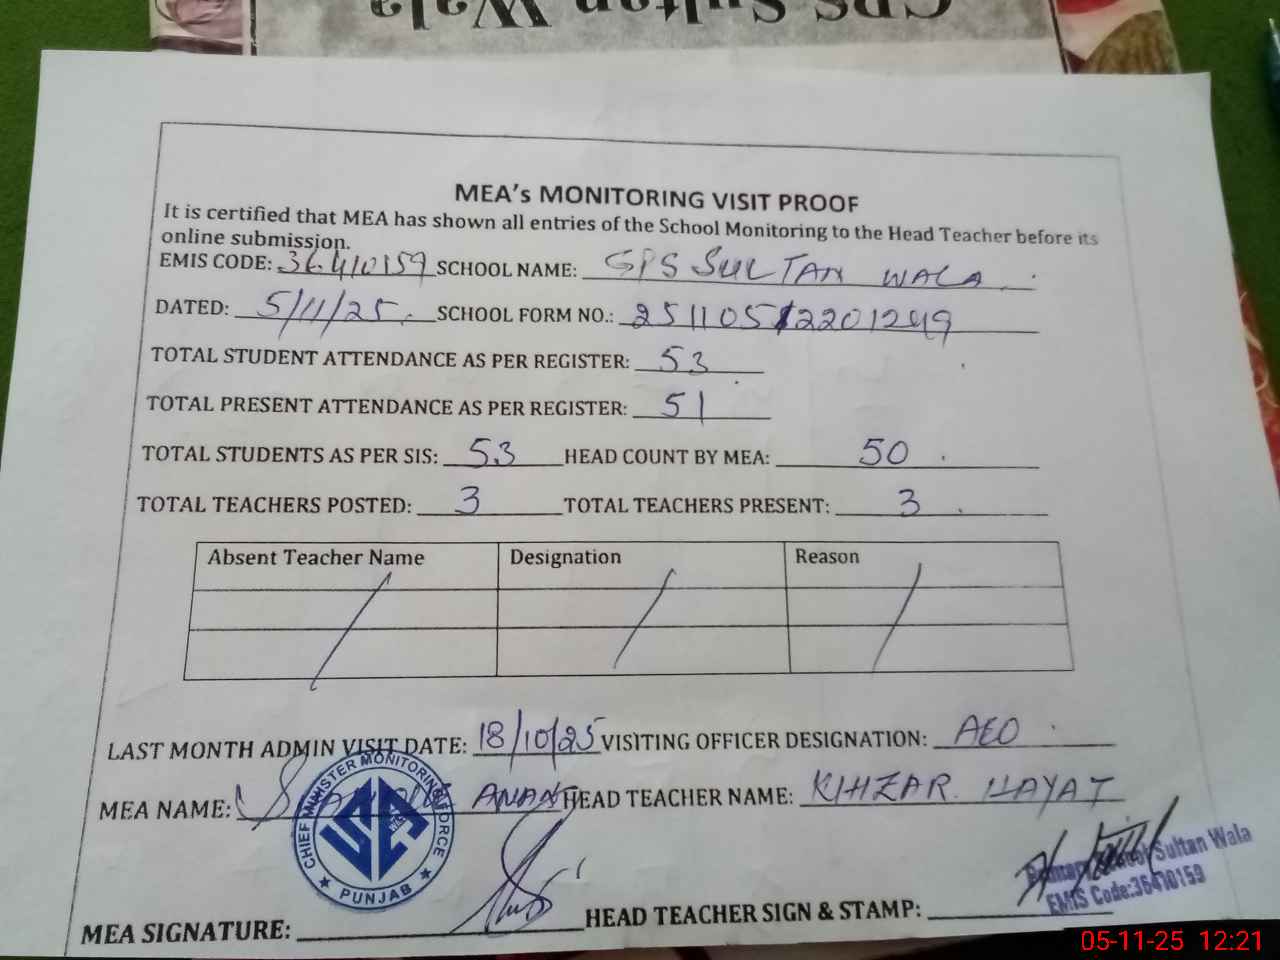 GPS Sultan Wala
MEA's MONITORING VISIT PROOF
It is certified that MEA has shown all entries of the School Monitoring to the Head Teacher before its
online submission.
EMIS CODE: 36410159 SCHOOL NAME: GPS SULTAN WALA
DATED: 5/11/25. SCHOOL FORM NO.: 25110512201249
TOTAL STUDENT ATTENDANCE AS PER REGISTER: 53
TOTAL PRESENT ATTENDANCE AS PER REGISTER: 51
TOTAL STUDENTS AS PER SIS: 53 HEAD COUNT BY MEA: 50
TOTAL TEACHERS POSTED: 3 TOTAL TEACHERS PRESENT: 3
Absent Teacher Name Designation Reason
LAST MONTH ADMIN VISIT DATE: 18/10/25 VISITING OFFICER DESIGNATION: AEO
MEA NAME: HEAD TEACHER NAME: KHIZAR HAYAT
CHIEF MINISTER MONITORING FORCE
PUNJAB
MEA SIGNATURE: HEAD TEACHER SIGN & STAMP:
Sultan Wala
EMIS Code:36410159
05-11-25 12:21